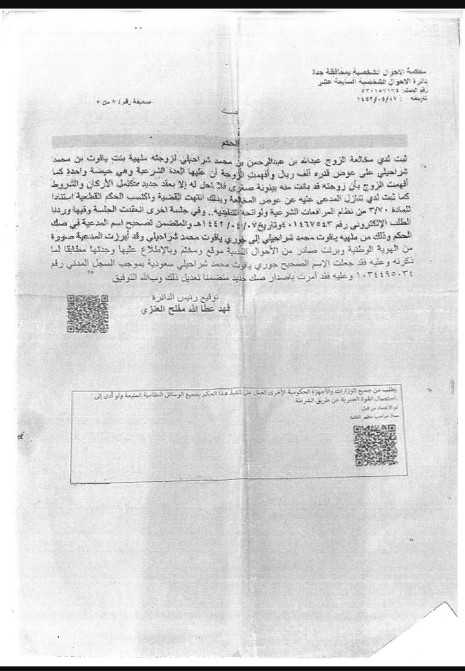 محكمة الاحوال الشخصية بمحافظة جدة
دائرة الاحوال الشخصية السابعة عشر
تاريخه : ١٤٤٢/٠٥/٠٧
صحيفة رقم ٤ من ٤
الحكم
ثبت لدي مخالعة الزوج عبدالله بن عبدالرحمن بن محمد شراحيلي لزوجته ملهية بنت ياقوت بن محمد
شراحيلي على عوض قدره ألف ريال وأفهمت الزوجة أن عليها العدة الشرعية وهي حيضة واحدة كما
أفهمت الزوج بأن زوجته قد بانت منه بينونة صغرى فلا تحل له إلا بعقد جديد متكامل الأركان والشروط
كما ثبت لدي تنازل المدعى عليه عن عوض المخالعة وبذلك انتهت القضية واكتسب الحكم القطعية استنادا
للمادة ٣/٧٠ من نظام المرافعات الشرعية ولوائحه التنفيذية.. وفي جلسة اخرى انعقدت الجلسة وفيها وردنا
الطلب الإلكتروني رقم وتاريخ والمتضمن تصحيح اسم المدعية في صك
الحكم وذلك من ملهيه ياقوت محمد شراحيلي إلى جوري ياقوت محمد شراحيلي وقد أبرزت المدعية صورة
من الهوية الوطنية وبرنت صادر من الأحوال المدنية موقع ومختوم وبالإطلاع عليها وجدتها مطابقا لما
ذكرته وعليه فقد جعلت الإسم الصحيح جوري ياقوت محمد شراحيلي سعودية بموجب السجل المدني رقم
١٠٣٤٤٩٥٠٣٤ وعليه فقد أمرت باصدار صك جديد متضمنا تعديل ذلك وبالله التوفيق
توقيع رئيس الدائرة
فهد عطا الله مفلح العنزي
يطلب من جميع الوزارات والأجهزة الحكومية الأخرى العمل على تنفيذ هذا الحكم بجميع الوسائل النظامية المتبعة ولو أدى إلى
استعمال القوة الجبرية عن طريق الشرطة.
تم الاعتماد من قبل